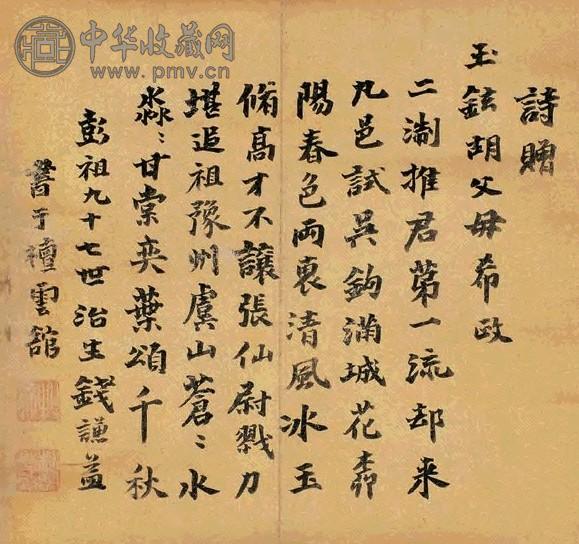 中华收藏网
www.pmv.cn
詩贈
玉鉉胡父母希政
二淛推君第一流却来
九邑試吳鉤滿城花桺
陽春色両褏清風冰玉
脩高才不讓張仙尉戮力
堪追祖豫州虞山蒼〻水
淼〻甘棠奕葉頌千秋
彭祖九十七世治生錢謙益
書于檀雲舘